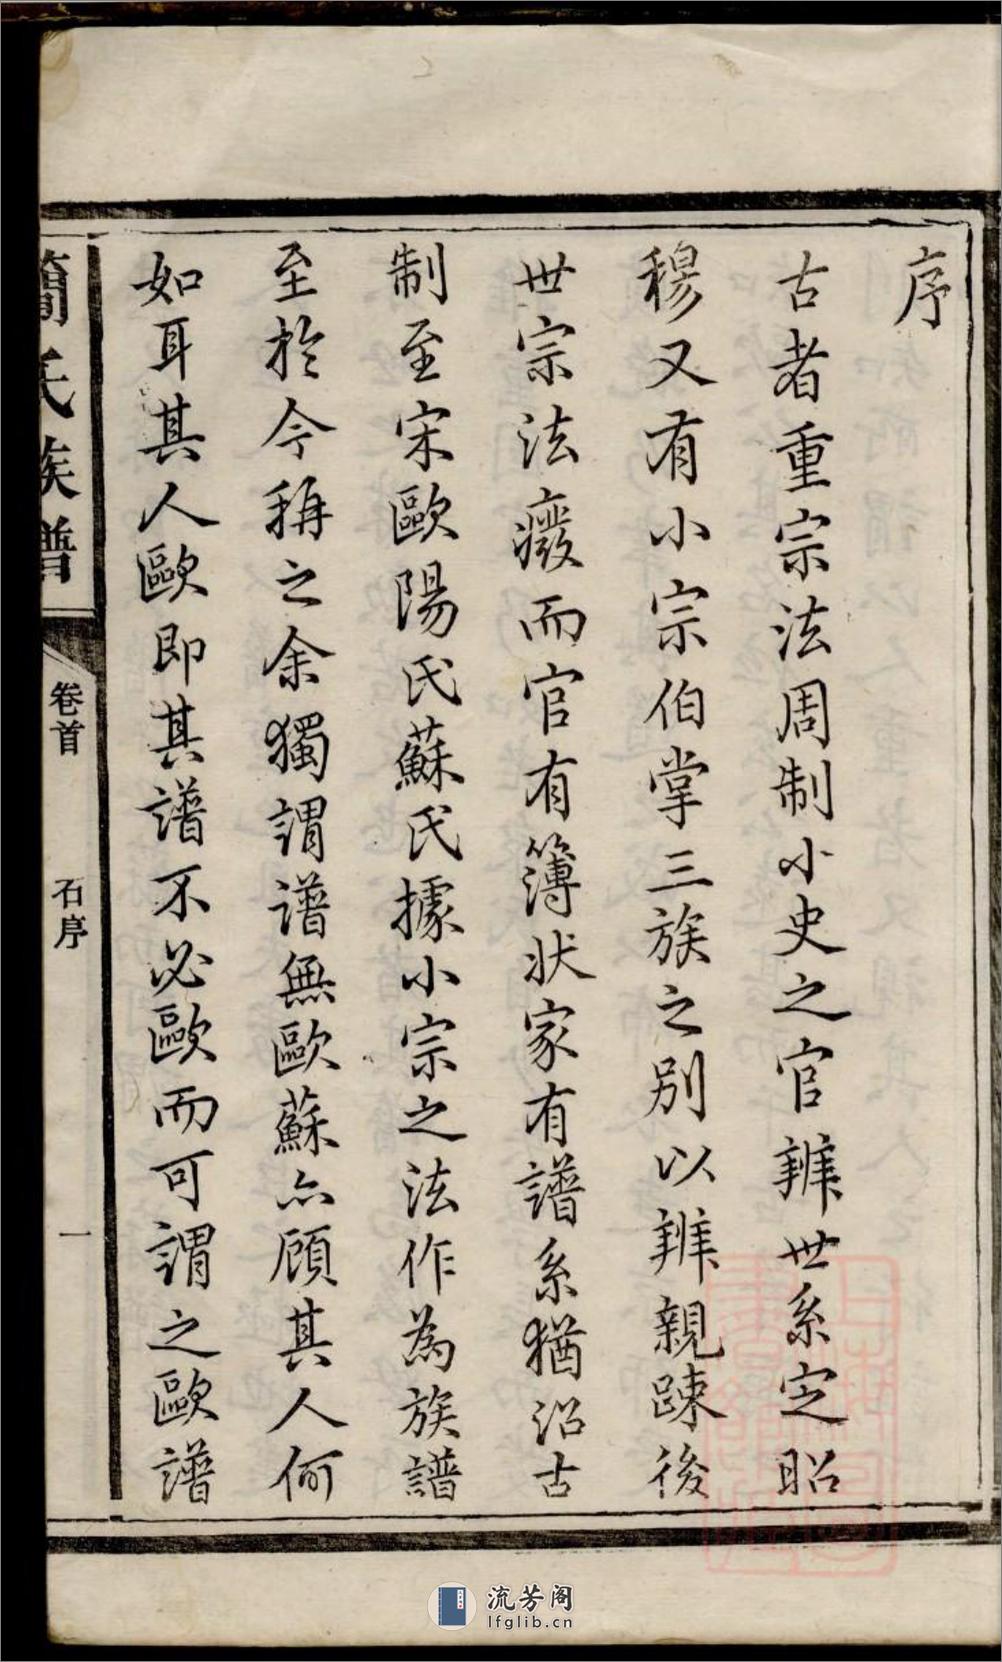 序
古者重宗法周制小史之官辨世系定昭
穆又有小宗伯掌三族之別以辨親踈後
世宗法癈而官有簿狀家有譜系猶沿古
制至宋歐陽氏蘇氏據小宗之法作為族譜
至於今稱之余獨謂譜無歐蘇亦顧其人何
如耳其人歐即其譜不必歐而可謂之歐譜
簡氏族譜
卷首
石序
一
流芳阁
lfglib.cn